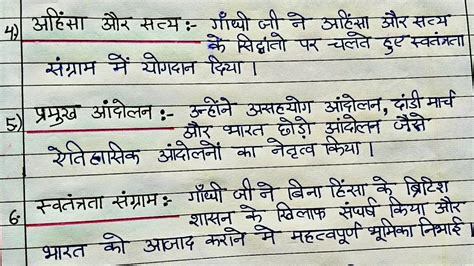 4) अहिंसा और सत्य :- गाँधी जी ने अहिंसा और सत्य
के सिद्धांतो पर चलते हुए स्वतंत्रता
संग्राम में योगदान दिया।
5) प्रमुख आंदोलन :- उन्होंने असहयोग आंदोलन, दांडी मार्च
और भारत छोड़ो आंदोलन जैसे
ऐतिहासिक आंदोलनों का नेतृत्व किया।
6. स्वतंत्रता संग्राम :- गाँधी जी ने बिना हिंसा के ब्रिटिश
शासन के खिलाफ संघर्ष किया और
भारत को आजाद कराने मे महत्वपूर्ण भूमिका निभाई।